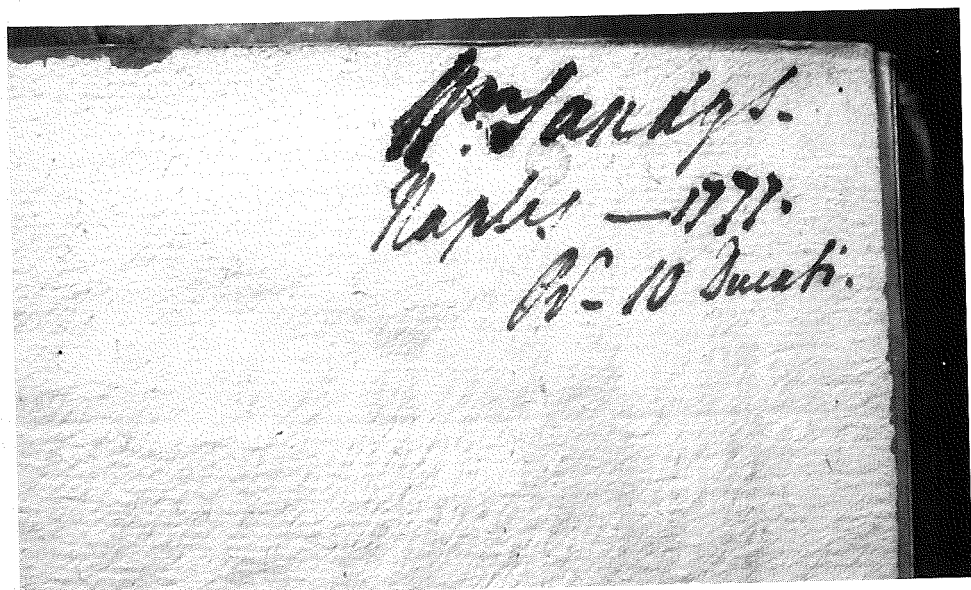 Wm. Sandys.
Naples — 1777.
Pd - 10 Ducati.